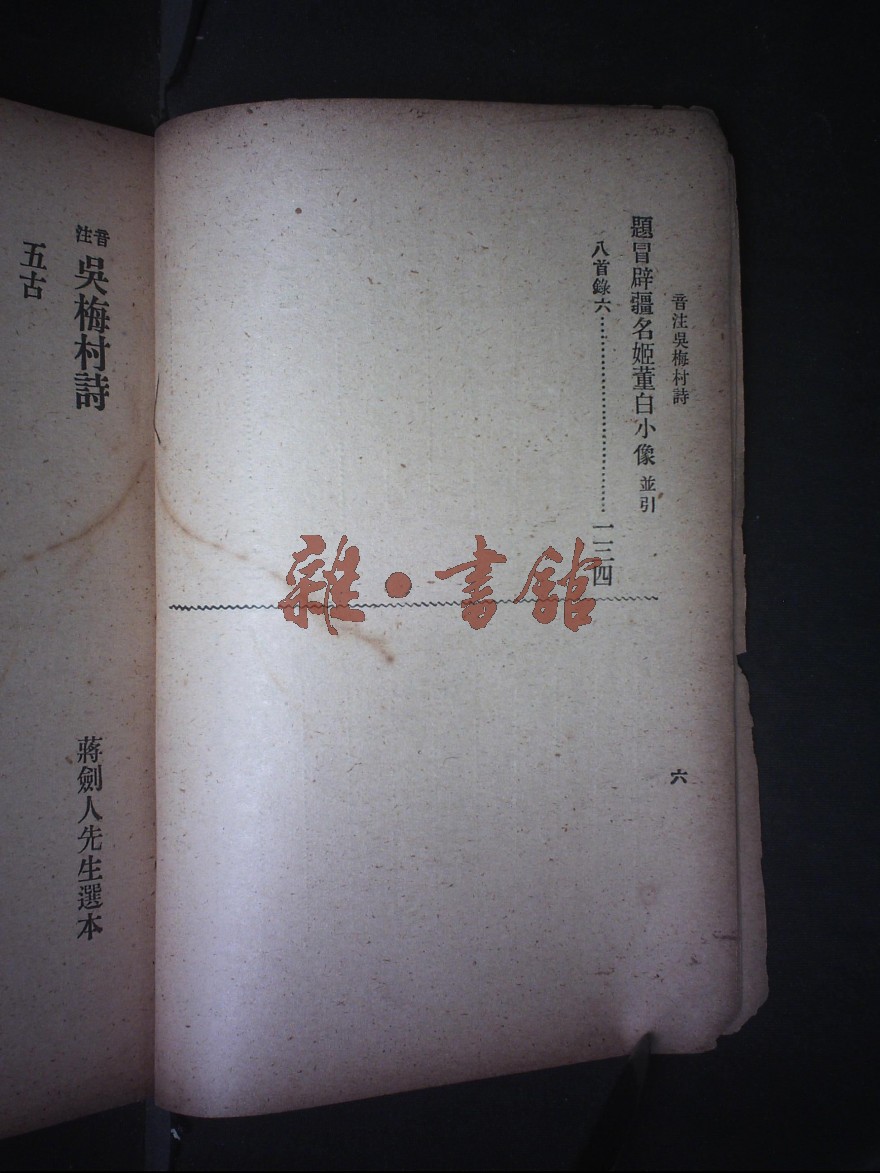 音注吳梅村詩
六
題冒辟疆名姬董白小像 並引
八首錄六……………………一三四
雜·書館
音注 吳梅村詩
蔣劍人先生選本
五古